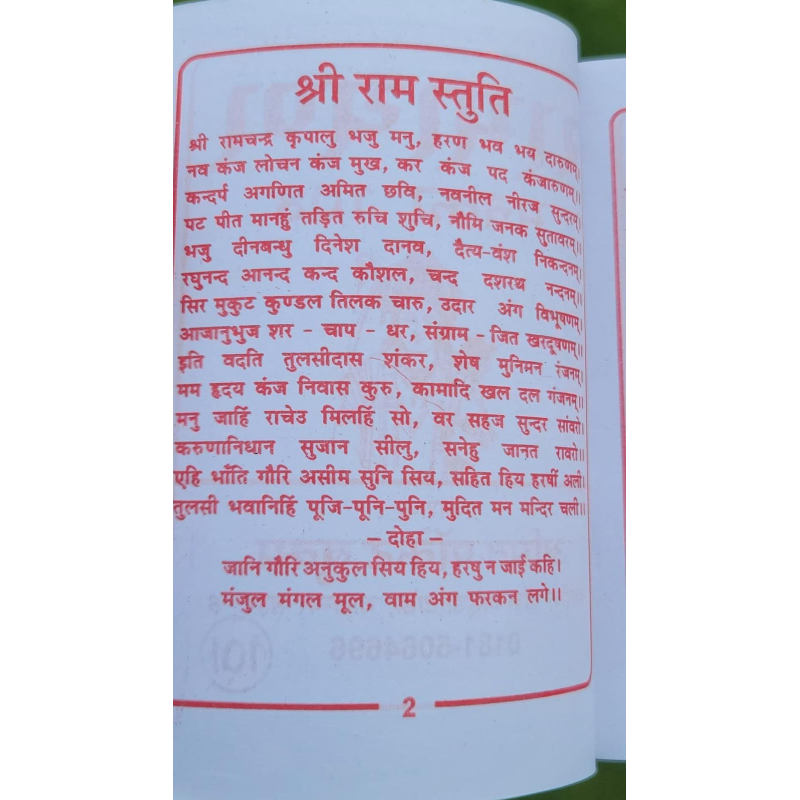 श्री राम स्तुति
श्री रामचन्द्र कृपालु भजु मनु, हरण भव भय दारुणम्।
नव कंज लोचन कंज मुख, कर कंज पद कंजारुणम्।।
कन्दर्प अगणित अमित छवि, नवनील नीरज सुन्दरम्।
पट पीत मानहुं तड़ित रुचि शुचि, नौमि जनक सुतावरम्।।
भजु दीनबन्धु दिनेश दानव, दैत्य-वंश निकन्दनम्।
रघुनन्द आनन्द कन्द कौशल, चन्द दशरथ नन्दनम्।।
सिर मुकुट कुण्डल तिलक चारु, उदार अंग विभूषणम्।
आजानुभुज शर - चाप - धर, संग्राम - जित खरदूषणम्।।
इति वदति तुलसीदास शंकर, शेष मुनिमन रंजनम्।
मम हृदय कंज निवास कुरु, कामादि खल दल गंजनम्।।
मनु जाहिं राचेउ मिलहिं सो, वर सहज सुन्दर सांवरो।
करुणानिधान सुजान सीलु, सनेहु जानत रावरो।।
एहि भाँति गौरि असीम सुनि सिय, सहित हिय हरषीं अली।
तुलसी भवानिहिं पूजि-पूनि-पुनि, मुदित मन मन्दिर चली।।
– दोहा –
जानि गौरि अनुकुल सिय हिय, हरषु न जाई कहि।
मंजुल मंगल मूल, वाम अंग फरकन लगे।।
2